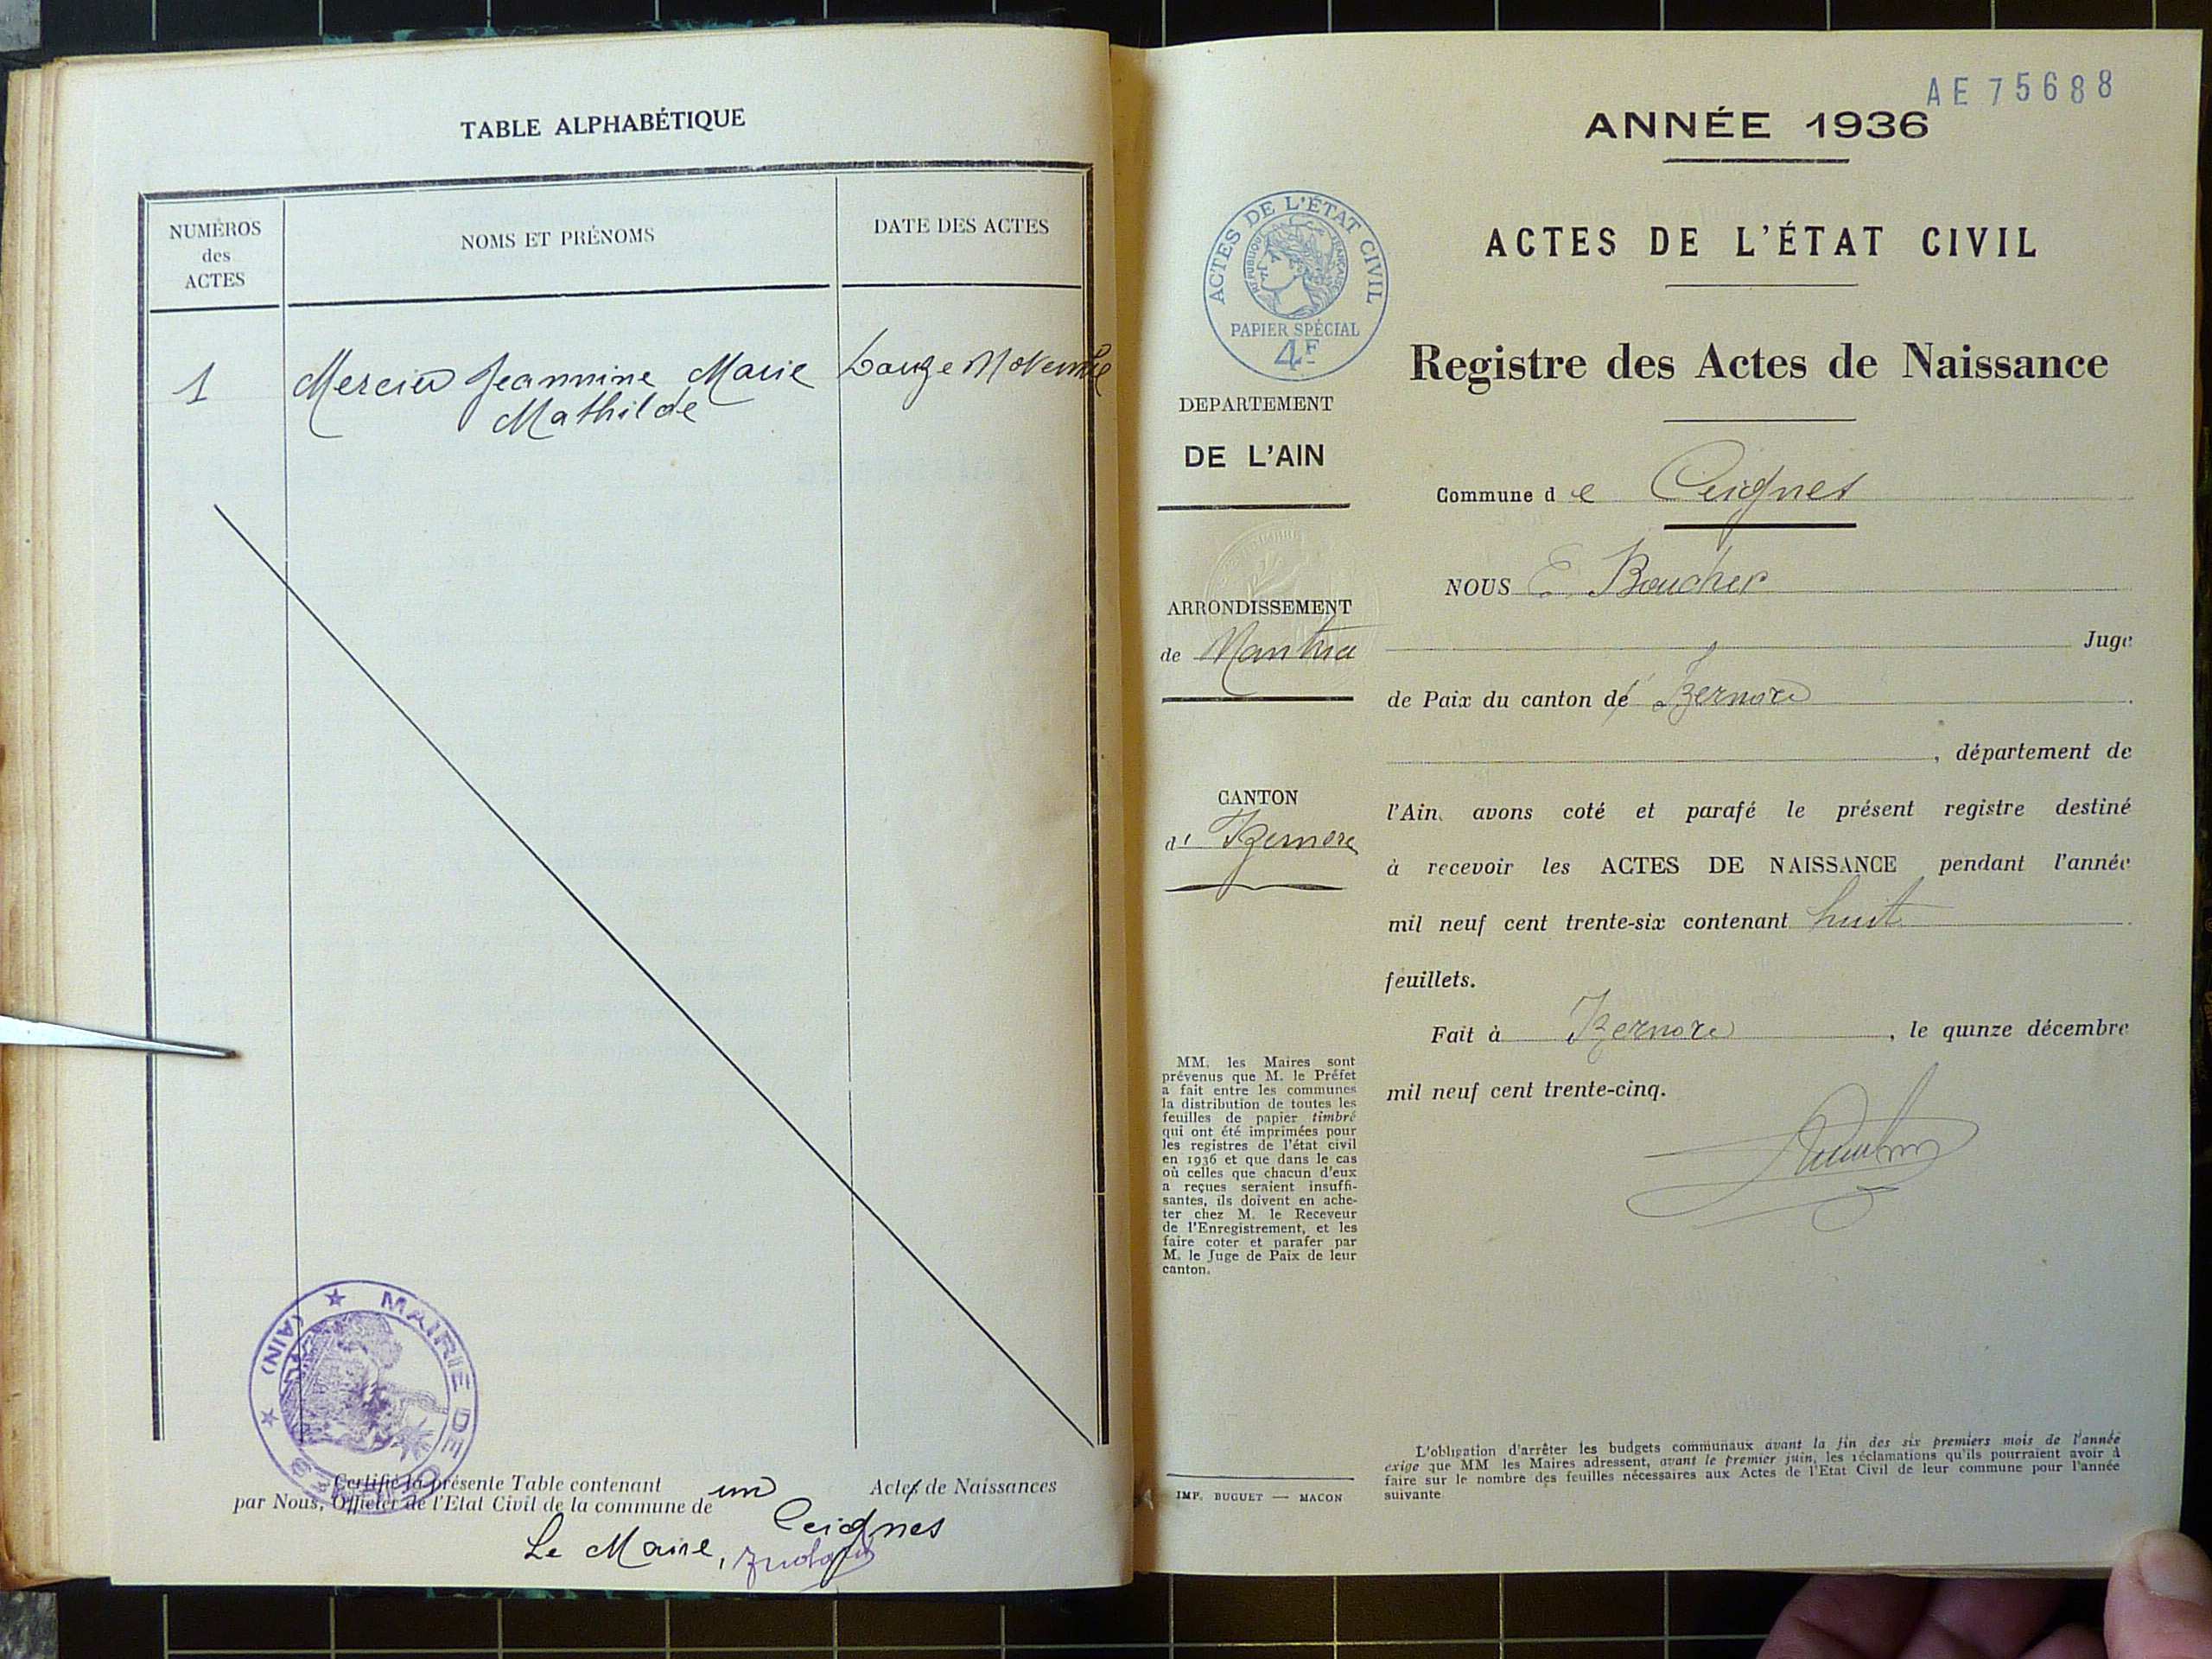 TABLE ALPHABÉTIQUE
NUMÉROS
des
ACTES
NOMS ET PRÉNOMS
DATE DES ACTES
1
Mercier Jeannine Marie
Mathilde
Douze Novembre
MAIRIE DE
(AIN)
Certifié la présente Table contenant un Actes de Naissances
par Nous, Officier de l'Etat Civil de la commune de Ceignes
Le Maire,
AE 75688
ANNÉE 1936
ACTES DE L'ÉTAT CIVIL
Registre des Actes de Naissance
ACTES DE L'ÉTAT CIVIL
RÉPUBLIQUE FRANÇAISE
PAPIER SPÉCIAL
4F
DEPARTEMENT
DE L'AIN
ARRONDISSEMENT
de Nantua
CANTON
d' Izernore
MM. les Maires sont
prévenus que M. le Préfet
a fait entre les communes
la distribution de toutes les
feuilles de papier timbré
qui ont été imprimées pour
les registres de l'état civil
en 1936 et que dans le cas
où celles que chacun d'eux
a reçues seraient insuffi-
santes, ils doivent en ache-
ter chez M. le Receveur
de l'Enregistrement, et les
faire coter et parafer par
M. le Juge de Paix de leur
canton.
IMP. BUGUET — MACON
Commune d e Ceignes
NOUS E. Boucher
Juge
de Paix du canton d' Izernore
, département de
l'Ain, avons coté et parafé le présent registre destiné
à recevoir les ACTES DE NAISSANCE pendant l'année
mil neuf cent trente-six contenant huit
feuillets.
Fait à Izernore, le quinze décembre
mil neuf cent trente-cinq.
L'obligation d'arrêter les budgets communaux avant la fin des six premiers mois de l'année
exige que MM les Maires adressent, avant le premier juin, les réclamations qu'ils pourraient avoir à
faire sur le nombre des feuilles nécessaires aux Actes de l'Etat Civil de leur commune pour l'année
suivante